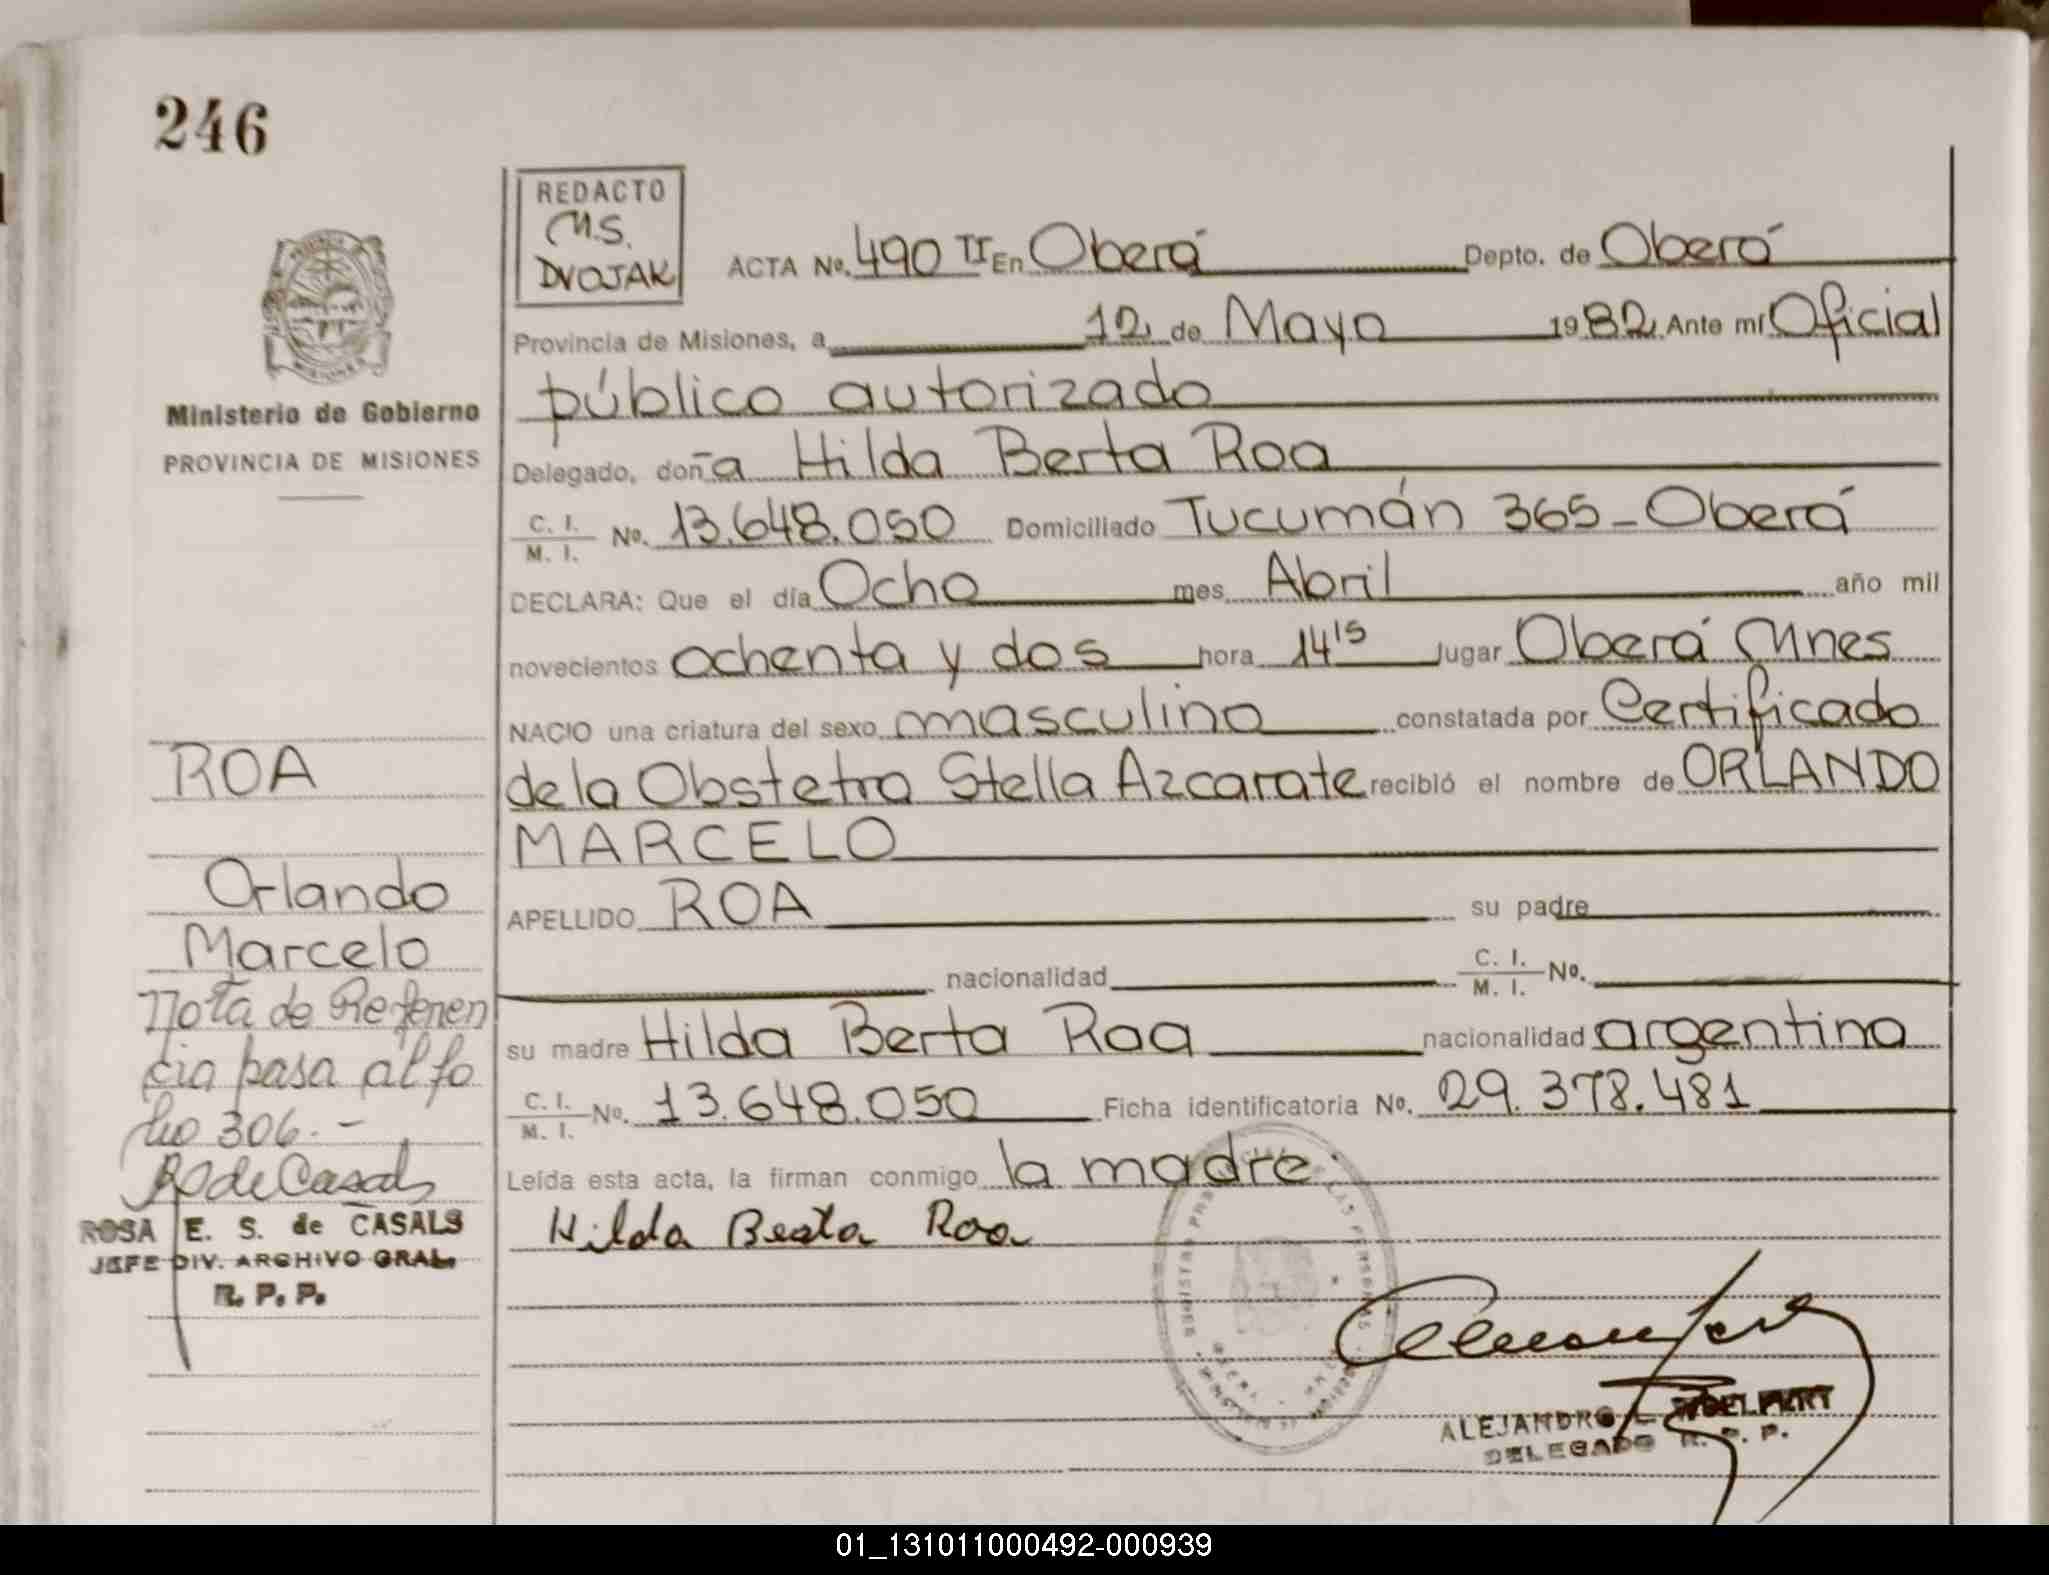 246
REDACTO
M.S.
DVOJAK
ACTA No. 490 TI En Oberá Depto. de Oberá
Provincia de Misiones, a 12 de Mayo 1982 Ante mí Oficial
público autorizado
Ministerio de Gobierno
PROVINCIA DE MISIONES
Delegado, doña Hilda Berta Roa
C. I.
M. I. No. 13.648.050 Domiciliado Tucumán 365 - Oberá
DECLARA: Que el día Ocho mes Abril año mil
novecientos ochenta y dos hora 14 15 lugar Oberá Mnes
NACIO una criatura del sexo masculino constatada por Certificado
de la Obstetra Stella Azcarate recibió el nombre de ORLANDO
MARCELO
APELLIDO ROA su padre
nacionalidad C. I.
M. I. No.
su madre Hilda Berta Roa nacionalidad argentina
C. I.
M. I. No. 13.648.050 Ficha identificatoria No. 29.378.481
Leída esta acta, la firman conmigo la madre.
Hilda Berta Roa
ROA
Orlando
Marcelo
Nota de Referen
cia pasa al fo
lio 306.-
R de Casals
ROSA E. S. de CASALS
JEFE DIV. ARCHIVO GRAL.
R. P. P.
ALEJANDRO
DELEGADO R. P. P.
01_131011000492-000939